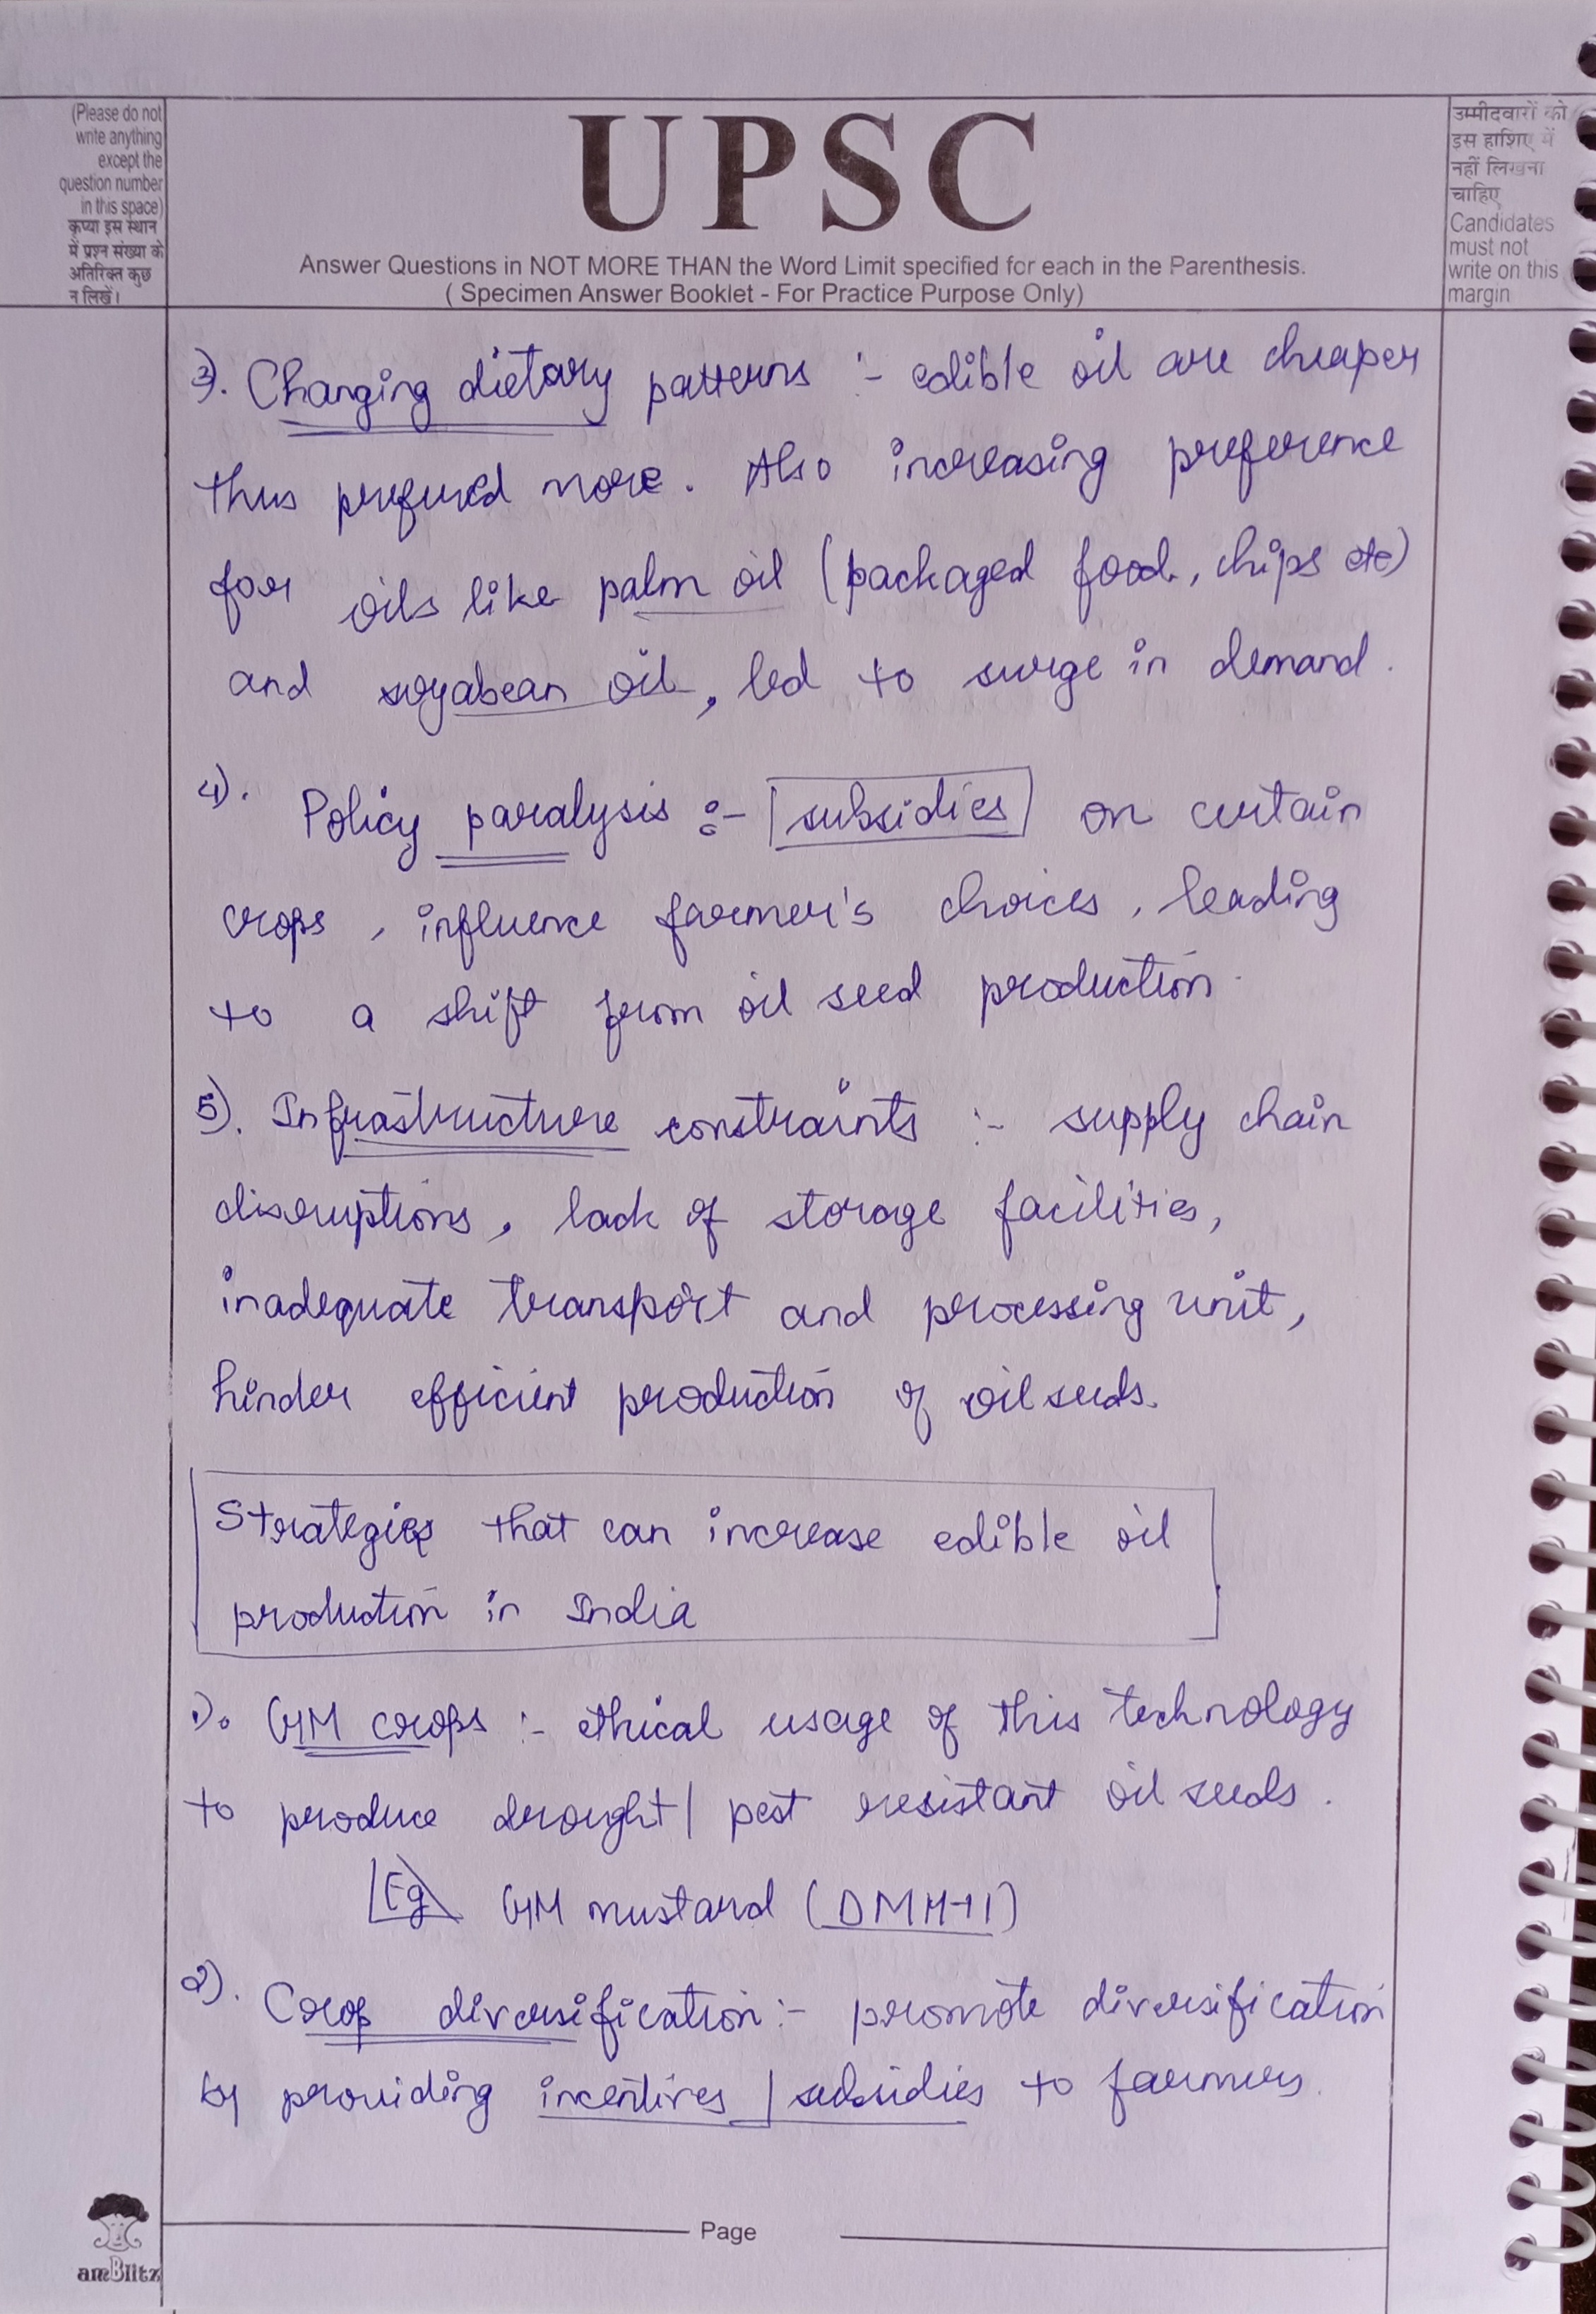 (Please do not
write anything
except the
question number
in this space)
कृप्या इस स्थान
में प्रश्न संख्या के
अतिरिक्त कुछ
न लिखें।
UPSC
Answer Questions in NOT MORE THAN the Word Limit specified for each in the Parenthesis.
( Specimen Answer Booklet - For Practice Purpose Only)
उम्मीदवारों को
इस हाशिए में
नहीं लिखना
चाहिए
Candidates
must not
write on this
margin
3). Changing dietary patterns :- edible oil are cheaper
thus prefured more. Also increasing preference
for oils like palm oil (packaged food, chips etc)
and soyabean oil, led to surge in demand.
4). Policy paralysis :- subsidies on certain
crops, influence farmer's choices, leading
to a shift from oil seed production.
5). Infrastructure constraints :- supply chain
disruptions, lack of storage facilities,
inadequate transport and processing unit,
hinder efficient production of oilseeds.
Strategies that can increase edible oil
production in India
1). GM crops :- ethical usage of this technology
to produce drought/ pest resistant oil seeds.
Eg GM mustard (DMH-11)
2). Crop diversification :- promote diversification
by providing incentives / subsidies to farmers.
Page
amBlitz